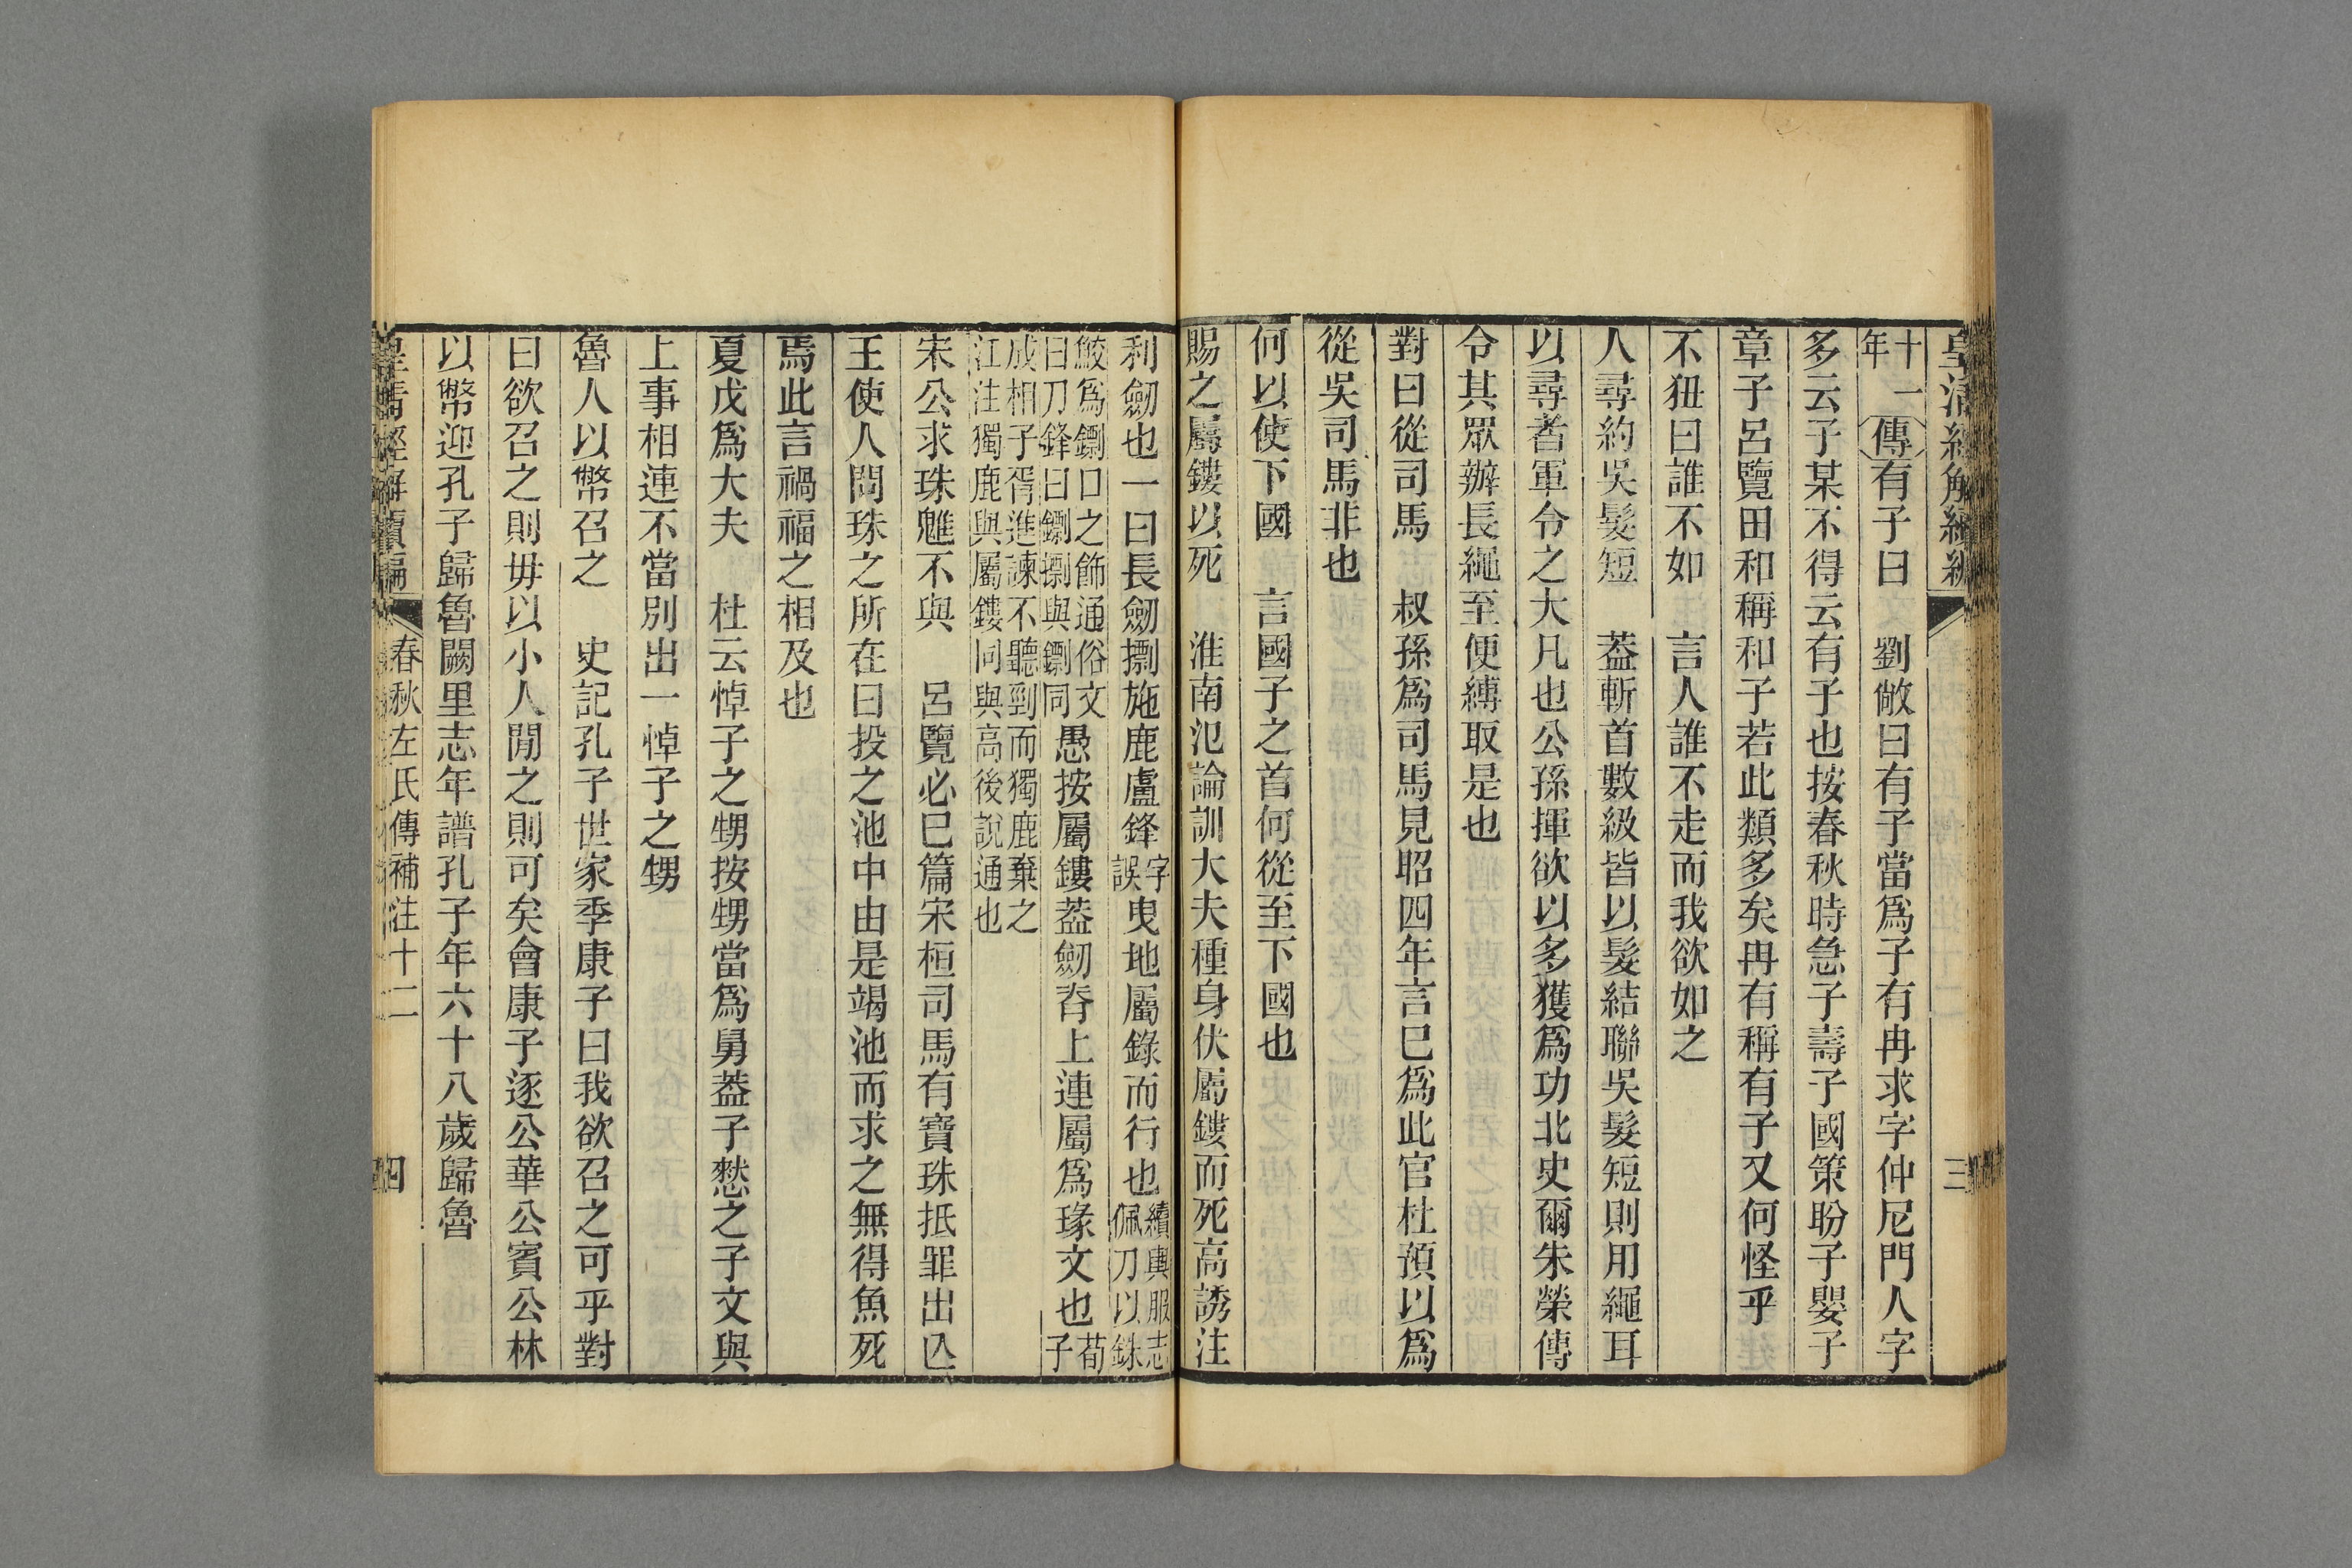 皇清經解續編 三
十一年傳有子曰 劉敞曰有子當爲子有冉求字仲尼門人字
多云子某不得云有子也按春秋時急子壽子國策盼子嬰子
章子呂覽田和稱和子若此類多矣冉有稱有子又何怪乎
不狃曰誰不如 言人誰不走而我欲如之
人尋約吳髮短 葢斬首數級皆以髮結聯吳髮短則用繩耳
以尋者軍令之大凡也公孫揮欲以多獲爲功北史爾朱榮傳
令其眾辦長繩至便縛取是也
對曰從司馬 叔孫爲司馬見昭四年言巳爲此官杜預以爲
從吳司馬非也
何以使下國 言國子之首何從至下國也
賜之屬鏤以死 淮南氾論訓大夫種身伏屬鏤而死高誘注
利劒也一曰長劒摽施鹿盧鋒字誤曳地屬錄而行也續輿服志佩刀以銖
鮫爲鏢口之飾通俗文曰刀鋒曰鏢摽與鏢同愚按屬鏤葢劒脊上連屬爲瑑文也荀子
成相子胥進諫不聽剄而獨鹿棄之江注獨鹿與屬鏤同與高後說通也
宋公求珠魋不與 呂覽必巳篇宋桓司馬有寶珠抵罪出亾
王使人問珠之所在曰投之池中由是竭池而求之無得魚死
焉此言禍福之相及也
夏戊爲大夫 杜云悼子之甥按甥當爲舅葢子憖之子文與
上事相連不當別出一悼子之甥
魯人以幣召之 史記孔子世家季康子曰我欲召之可乎對
曰欲召之則毋以小人閒之則可矣會康子逐公華公賓公林
以幣迎孔子歸魯闕里志年譜孔子年六十八歲歸魯
皇清經解續編 春秋左氏傳補注十二 四